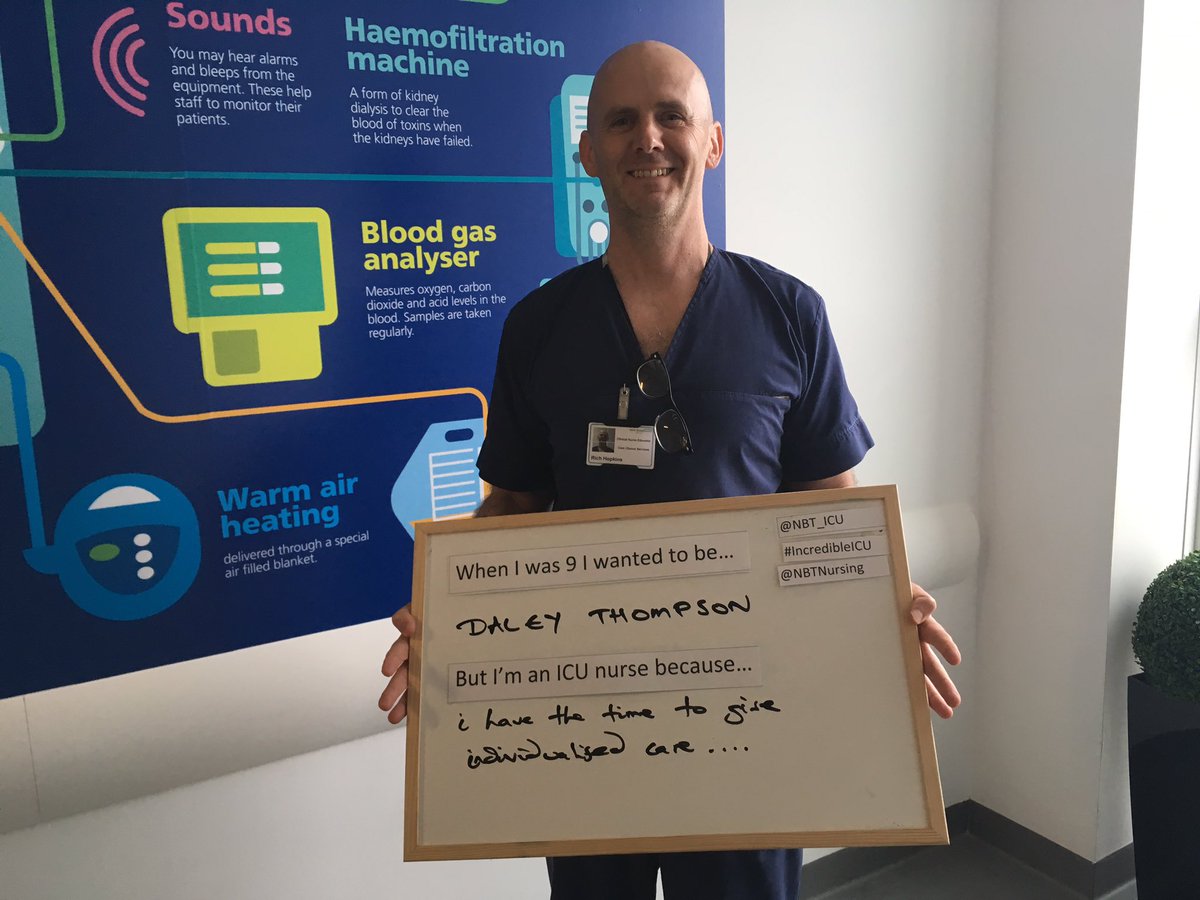 Sounds
You may hear alarms
and bleeps from the
equipment. These help
staff to monitor their
patients.
Haemofiltration
machine
A form of kidney
dialysis to clear the
blood of toxins when
the kidneys have failed.
Blood gas
analyser
Measures oxygen, carbon
dioxide and acid levels in the
blood. Samples are taken
regularly.
Warm air
heating
delivered through a special
air filled blanket.
Clinical Nurse Educator
Core Clinical Services
Rich Hopkins
@NBT_ICU
#IncredibleICU
@NBTNursing
When I was 9 I wanted to be...
DALEY THOMPSON
But I'm an ICU nurse because...
i have the time to give
individualised care ....